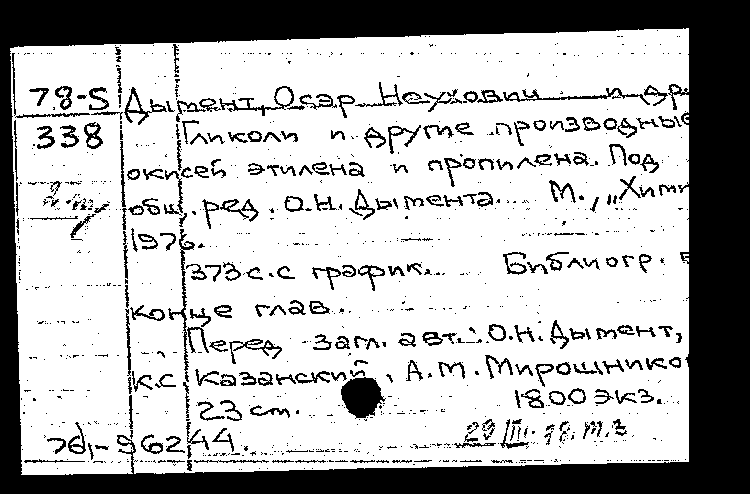 78-5 Дымент, Осар Неухович и др
338 Гликоли и другие производные
окисей этилена и пропилена. Под
2 т общ. ред. О.Н. Дымента. М., „Хими
1976.
373с. с график. Библиогр. в
конце глав.
Перед загл. авт.: О.Н. Дымент,
К.С. Казанский, А.М. Мирошнико
23 cm. 1800 экз.
96244. 29 III